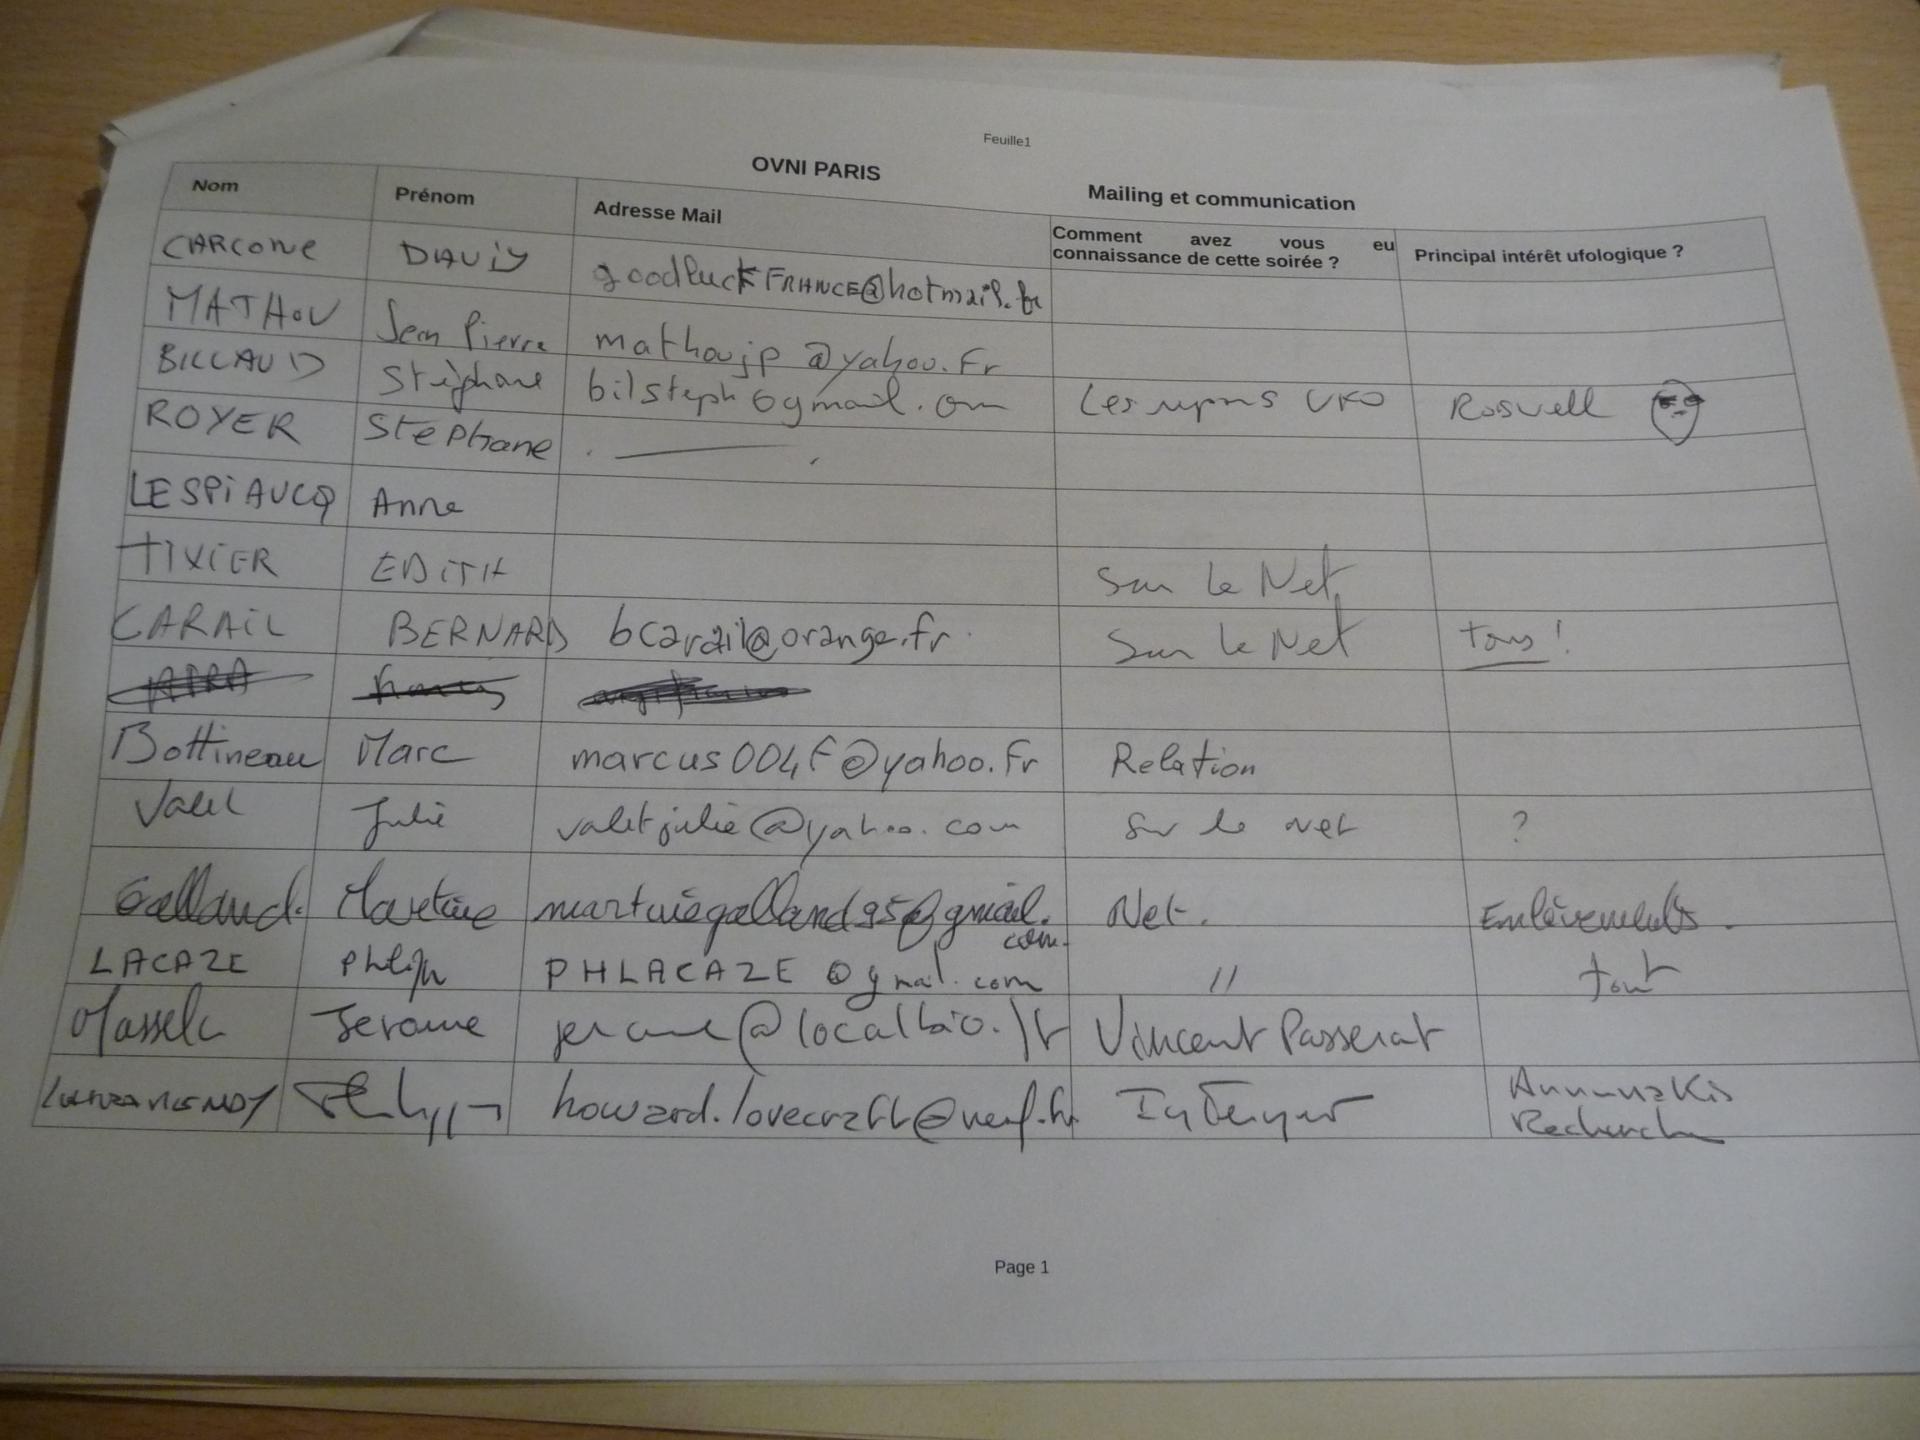 Feuille1
OVNI PARIS
Mailing et communication
Nom Prénom Adresse Mail Comment avez vous eu connaissance de cette soirée ? Principal intérêt ufologique ?
CARCONE DAVID goodluckFRANCE@hotmail.fr
MATHOU Jean Pierre mathoujp@yahoo.Fr
BILLAUD Stéphane bilsteph@gmail.com Les repas UFO Roswell
ROYER Stéphane
LESPIAUCQ Anne
TIXIER EDITH Sur le Net
CARAIL BERNARD bcarail@orange.fr Sur le Net Tous !
Bottineau Marc marcus004F@yahoo.Fr Relation
Valet Julie valetjulie@yahoo.com Sur le net ?
Galland. Martine martinegalland95@gmail.com. Net. Enlèvements.
LACAZE PHLACAZE@gmail.com // tout
Jerome jerome@localbio.fr Vincent Passerat
howard.lovecraft@neuf.fr Annunakis
Recherche
Page 1